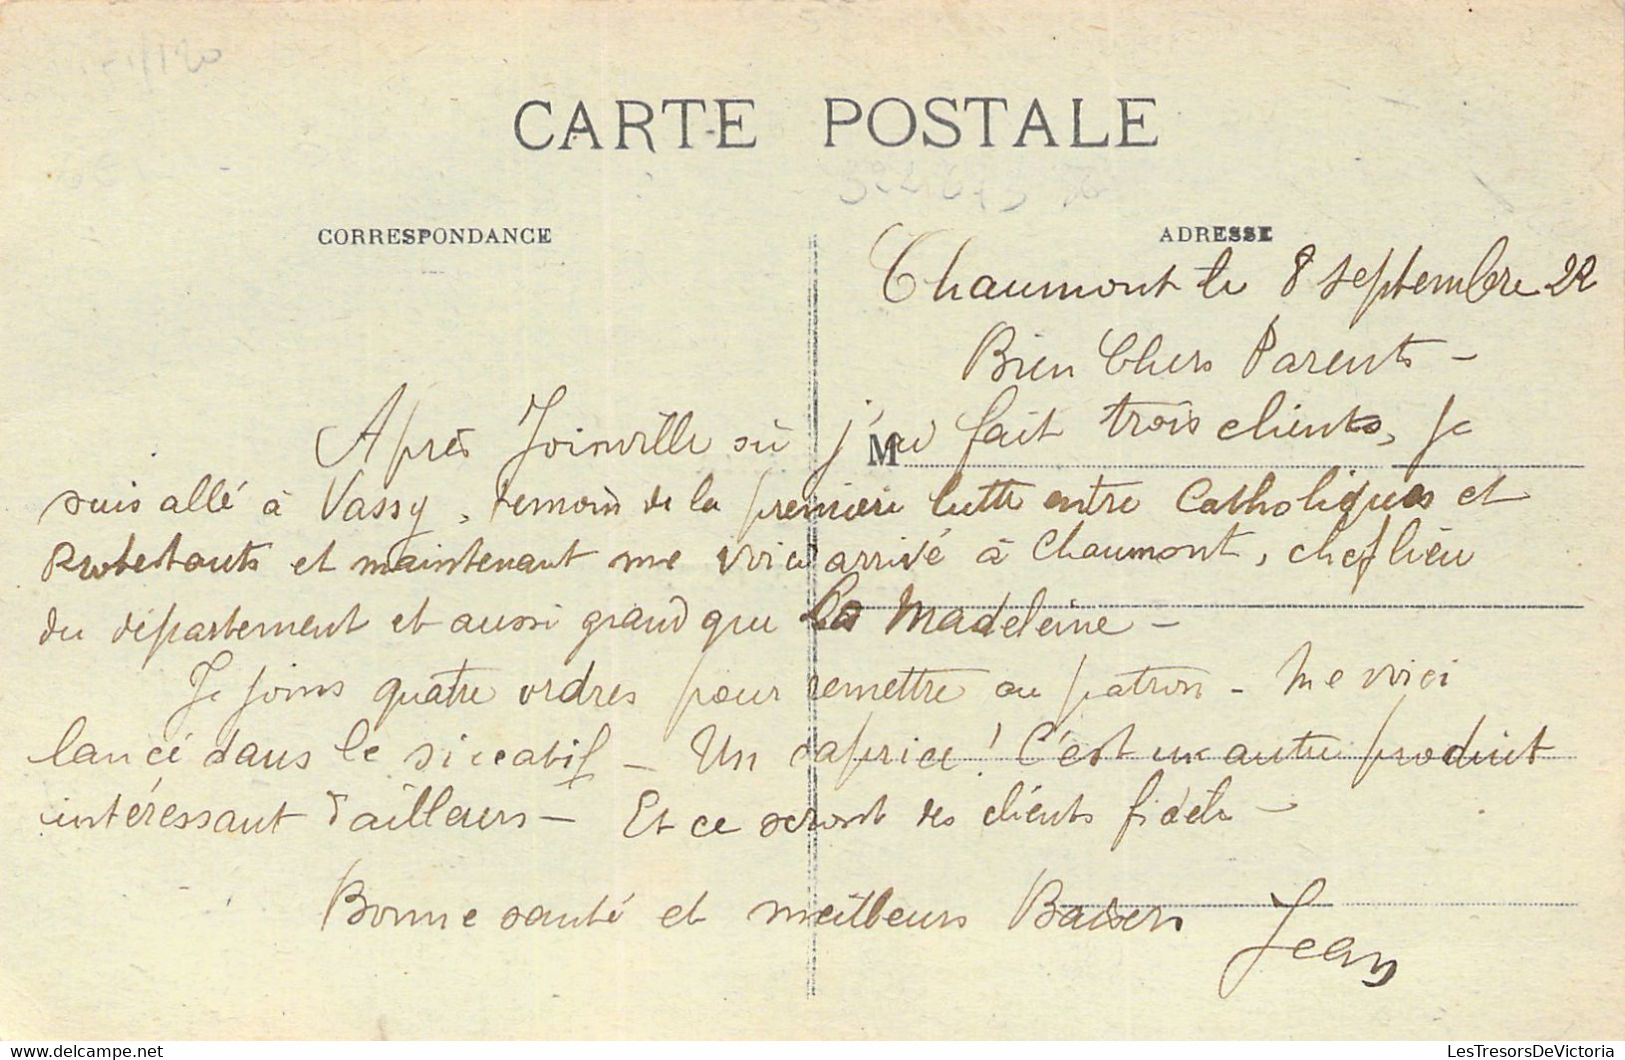 CARTE POSTALE
CORRESPONDANCE
ADRESSE
Chaumont le 8 Septembre 22
Bien Chers Parents -
M
Après Joinville où j'ai fait trois clients, je
suis allé à Vassy, témoin de la première lutte entre Catholiques et
Protestants et maintenant me voici arrivé à Chaumont, chef lieu
du département et aussi grand que La Madeleine -
Je joins quatre ordres pour remettre au patron - Me voici
lancé dans le siccatif - Un caprice ! C'est un autre produit
intéressant d'ailleurs - Et ce seront des clients fidèle -
Bonne santé et meilleurs Baisers Jean
LesTresorsDeVictoria